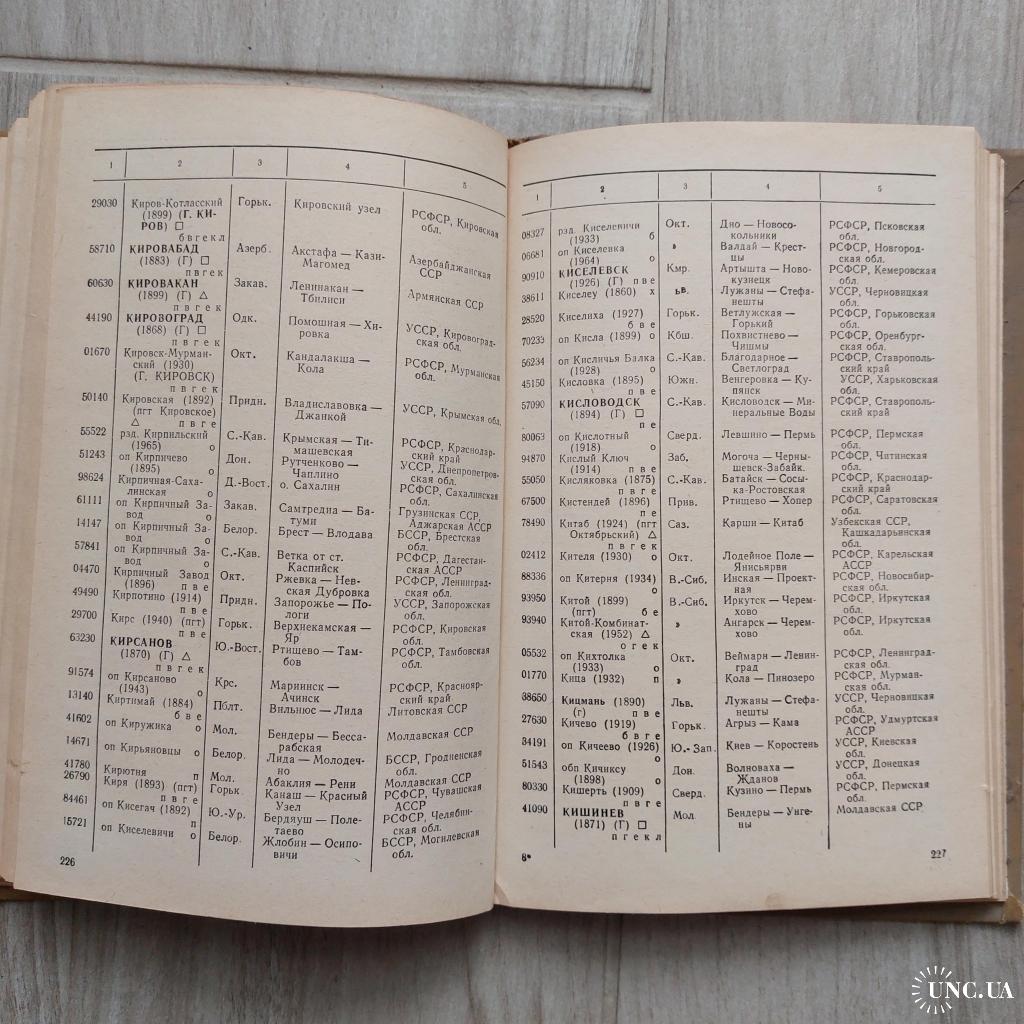 1 2 3 4 5
29030 Киров-Котласский Горьк. Кировский узел РСФСР, Кировская
(1899) (Г. КИ- обл.
РОВ) □
б в г е к л
58710 КИРОВАБАД Азерб. Акстафа — Кази- Азербайджанская
(1883) (Г) □ Магомед ССР
п в г е к
60630 КИРОВАКАН Закав. Ленинакан — Армянская ССР
(1899) (Г) △ Тбилиси
п в г е к
44190 КИРОВОГРАД Одк. Помошная — Хи- УССР, Кировоград-
(1868) (Г) □ ровка ская обл.
п в г е к
01670 Кировск-Мурман- Окт. Кандалакша — РСФСР, Мурманская
ский (1930) Кола обл.
(Г. КИРОВСК)
п в г е к
50140 Кировская (1892) Придн. Владиславовка — УССР, Крымская обл.
(пгт Кировское) Джанкой
△ п в г е
55522 рзд. Кирпильский С.-Кав. Крымская — Ти- РСФСР, Краснодар-
(1965) о машевская ский край
51243 оп Кирпичево Дон. Рутченково — УССР, Днепропетров-
(1895) о Чаплино ская обл.
98624 Кирпичная-Саха- Д.-Вост. о. Сахалин РСФСР, Сахалинская
линская о обл.
61111 оп Кирпичный За- Закав. Самтредиа — Ба- Грузинская ССР,
вод о туми Аджарская АССР
14147 оп Кирпичный За- Белор. Брест — Влодава БССР, Брестская
вод о обл.
57841 оп Кирпичный За- С.-Кав. Ветка от ст. РСФСР, Дагестан-
вод о Каспийск ская АССР
04470 Кирпичный Завод Окт. Ржевка — Нев- РСФСР, Ленинград-
(1896) п в е ская Дубровка ская обл.
49490 Кирпотино (1914) Придн. Запорожье — По- УССР, Запорожская
п в е логи обл.
29700 Кирс (1940) (пгт) Горьк. Верхнекамская — РСФСР, Кировская
п в е Яр обл.
63230 КИРСАНОВ Ю.-Вост. Ртищево — Там- РСФСР, Тамбовская
(1870) (Г) △ бов обл.
п в г е к
91574 оп Кирсаново Крс. Мариинск — РСФСР, Краснояр-
(1943) о Ачинск ский край
13140 Киртимай (1884) Пблт. Вильнюс — Лида Литовская ССР
б в е
41602 оп Киружика о Мол. Бендеры — Бесса- Молдавская ССР
рабская
14671 оп Кирьяновцы о Белор. Лида — Молодеч- БССР, Гродненская
но обл.
41780 Кирютня п Мол. Абаклия — Рени Молдавская ССР
26790 Киря (1893) (пгт) Горьк. Канаш — Красный РСФСР, Чувашская
п в г е Узел АССР
84461 оп Кисегач (1892) Ю.-Ур. Бердяуш — Поле- РСФСР, Челябин-
п таево ская обл.
15721 оп Киселевичи о Белор. Жлобин — Осипо- БССР, Могилевская
вичи обл.
226
1 2 3 4 5
08327 рзд. Киселевичи Окт. Дно — Новосо- РСФСР, Псковская
(1933) б кольники обл.
06681 оп Киселевка » Валдай — Крест- РСФСР, Новгород-
(1964) о цы ская обл.
90910 КИСЕЛЕВСК Кмр. Артышта — Ново- РСФСР, Кемеровская
(1926) (Г) п в е кузнецк обл.
38611 Киселеу (1860) х ьв. Лужаны — Стефа- УССР, Черновицкая
нешты обл.
28520 Киселиха (1927) Горьк. Ветлужская — РСФСР, Горьковская
б в е Горький обл.
70233 оп Кисла (1899) о Кбш. Похвистнево — РСФСР, Оренбург-
Чишмы ская обл.
56234 оп Кисличья Балка С.-Кав. Благодарное — РСФСР, Ставрополь-
(1928) о Светлоград ский край
45150 Кисловка (1895) Южн. Венгеровка — Ку- УССР, Харьковская
п в е пянск обл.
57090 КИСЛОВОДСК С.-Кав. Кисловодск — Ми- РСФСР, Ставрополь-
(1894) (Г) □ неральные Воды ский край
п е
80063 оп Кислотный Сверд. Левшино — Пермь РСФСР, Пермская
(1918) о обл.
94870 Кислый Ключ Заб. Могоча — Черны- РСФСР, Читинская
(1914) п в е шевск-Забайк. обл.
55050 Кисляковка (1875) С.-Кав. Батайск — Сосы- РСФСР, Краснодар-
п в г е ка-Ростовская ский край
67500 Кистендей (1896) Прив. Ртищево — Хопер РСФСР, Саратовская
п е обл.
78490 Китаб (1924) (пгт Саз. Карши — Китаб Узбекская ССР,
Октябрьский) △ Кашкадарьинская
п в г е к обл.
02412 Кителя (1930) о Окт. Лодейное Поле — РСФСР, Карельская
Янисъярви АССР
88336 оп Китерня (1934) В.-Сиб. Инская — Проект- РСФСР, Новосибир-
о ная ская обл.
93950 Китой (1899) В.-Сиб. Иркутск — Черем- РСФСР, Иркутская
(пгт) б е хово обл.
93940 Китой-Комбинат- » Ангарск — Черем- РСФСР, Иркутская
ская (1952) △ хово обл.
о г е к
05532 оп Кихтолка Окт. Веймарн — Ленин- РСФСР, Ленинград-
(1933) о град ская обл.
01770 Кица (1932) п » Кола — Пинозеро РСФСР, Мурман-
ская обл.
38650 Кицмань (1890) Льв. Лужаны — Стефа- УССР, Черновицкая
(г) п в е нешты обл.
27630 Кичево (1919) Горьк. Агрыз — Кама РСФСР, Удмуртская
б в г е АССР
34191 оп Кичеево (1926) Ю.-Зап. Киев — Коростень УССР, Киевская
о обл.
51543 обп Кичиксу Дон. Волноваха — УССР, Донецкая
(1898) о Жданов обл.
80330 Кишерть (1909) Сверд. Кузино — Пермь РСФСР, Пермская
п в г е обл.
41090 КИШИНЕВ Мол. Бендеры — Унге- Молдавская ССР
(1871) (Г) □ ны
п г е к л
8* 227
UNC.UA